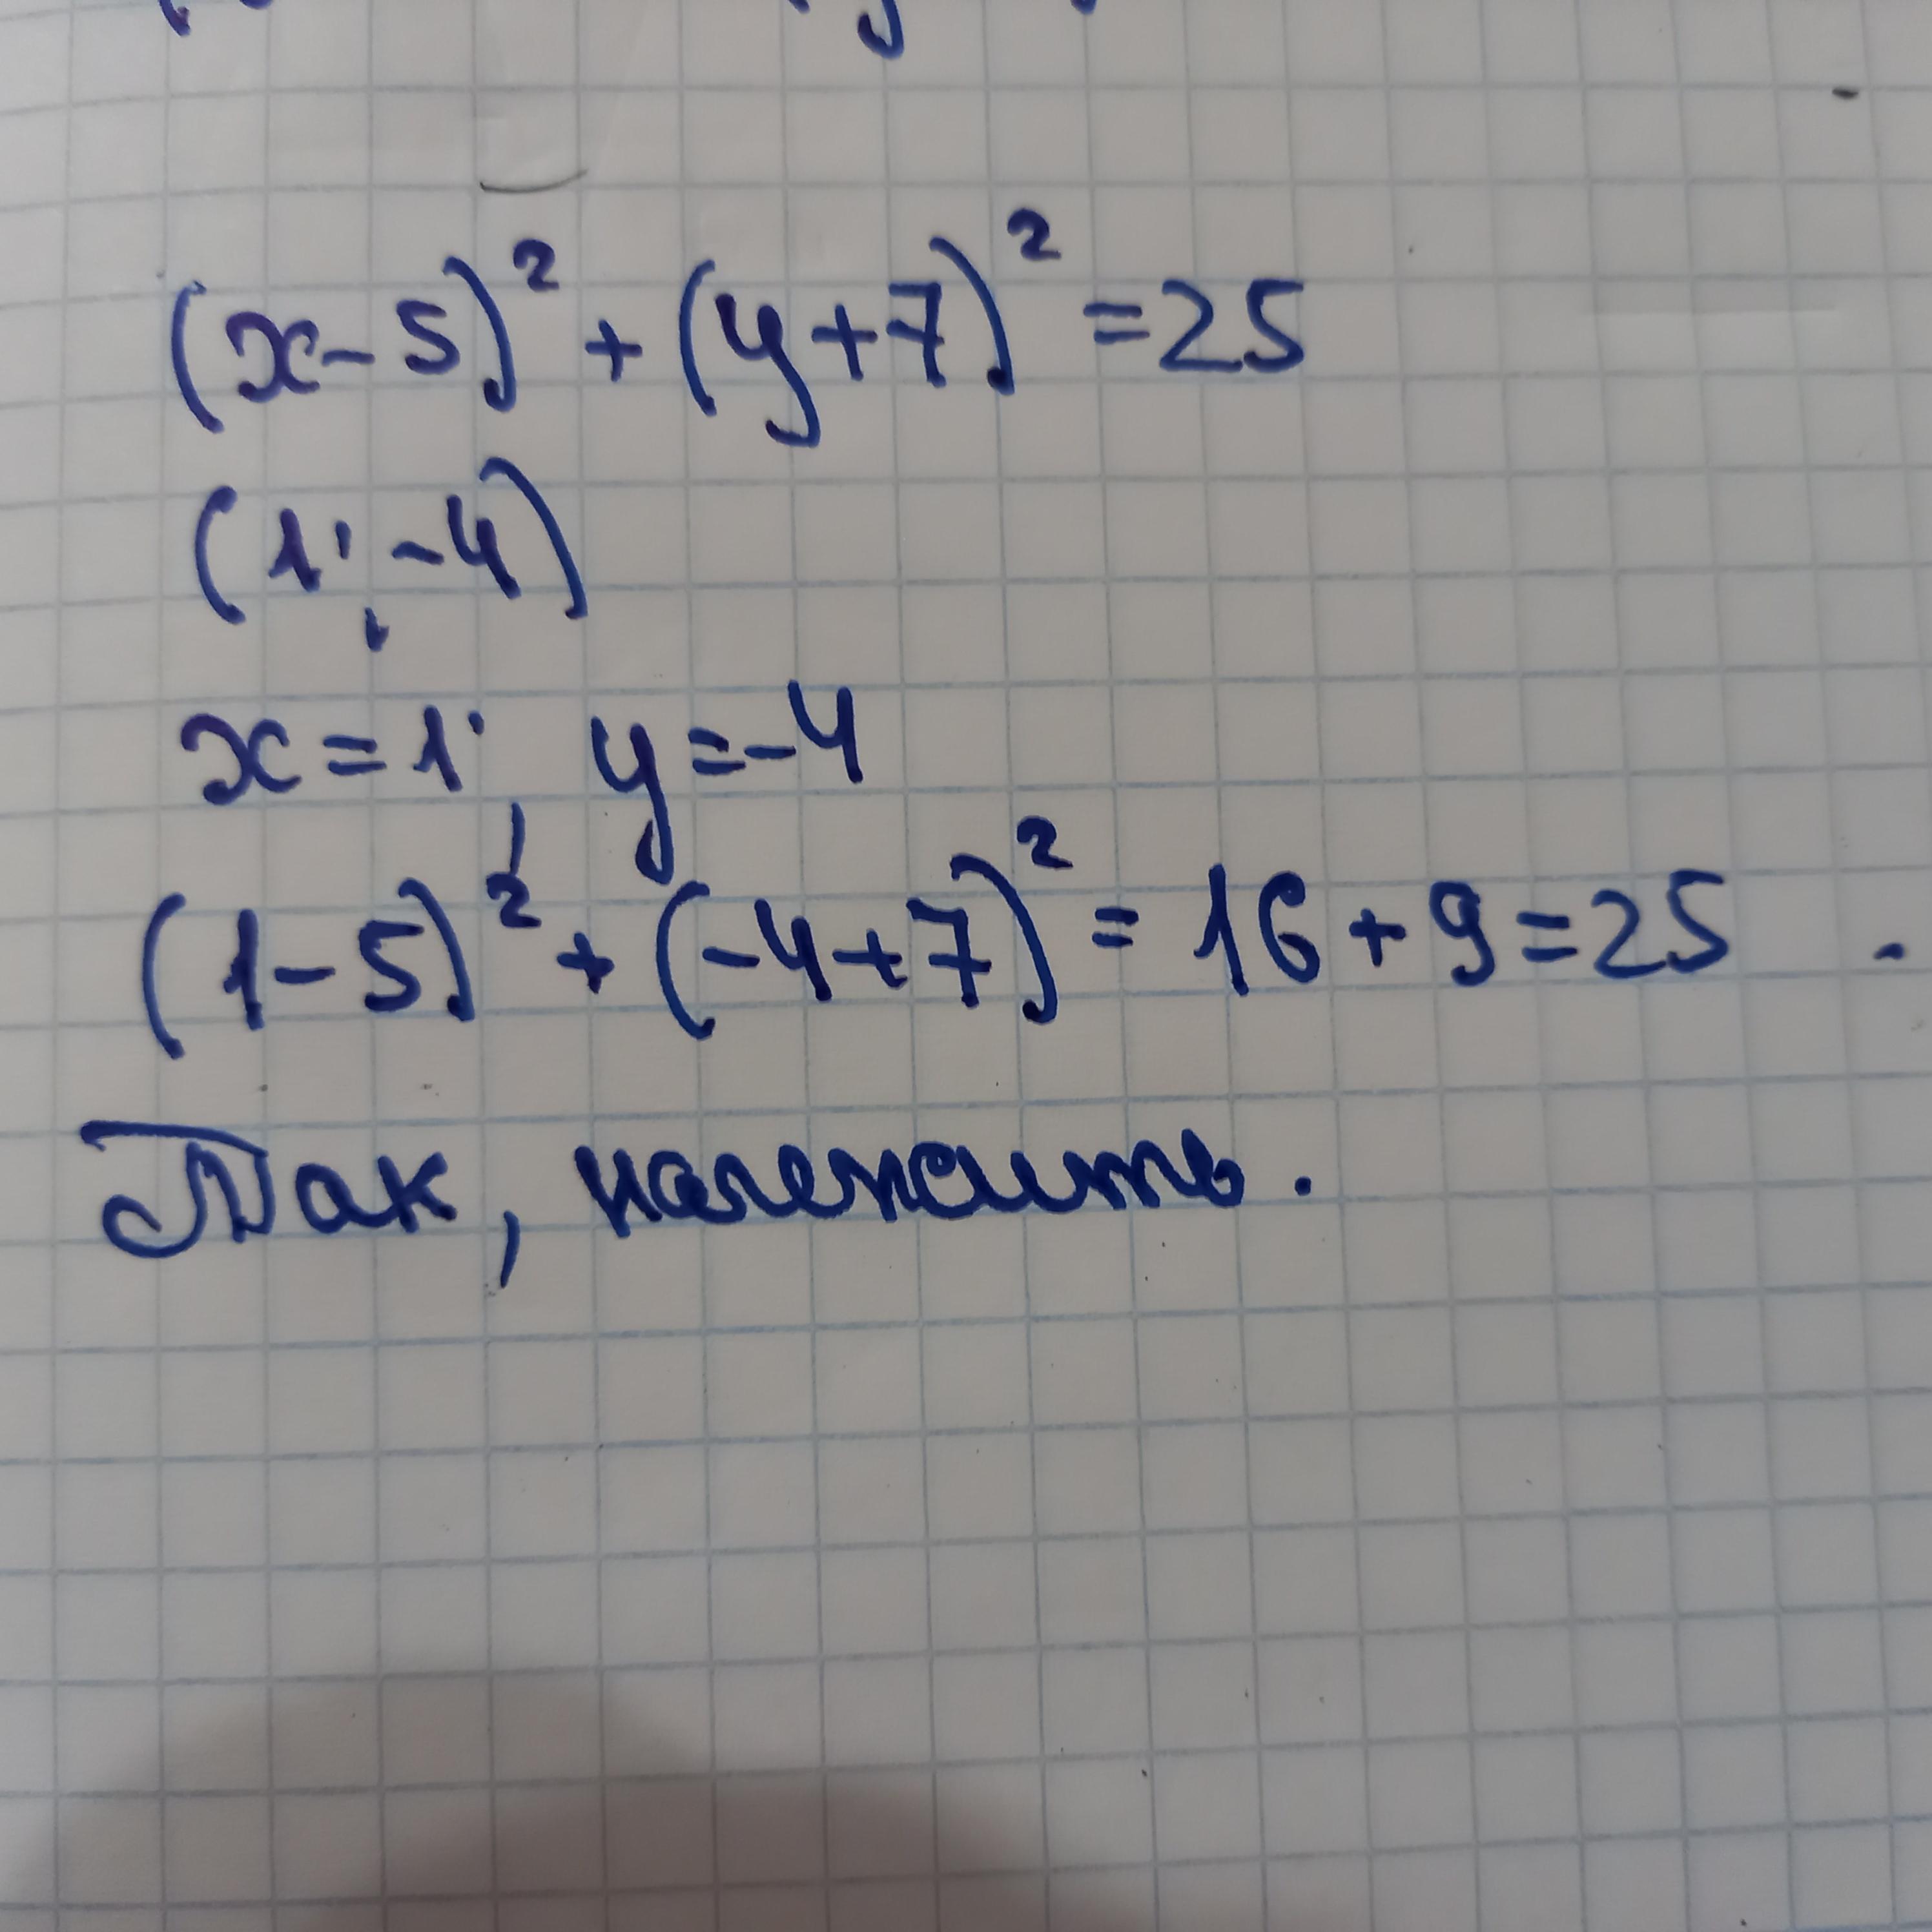 (x-5)² + (y+7)² = 25
(1; -4)
x = 1; y = -4
(1-5)² + (-4+7)² = 16 + 9 = 25
Так, належить.